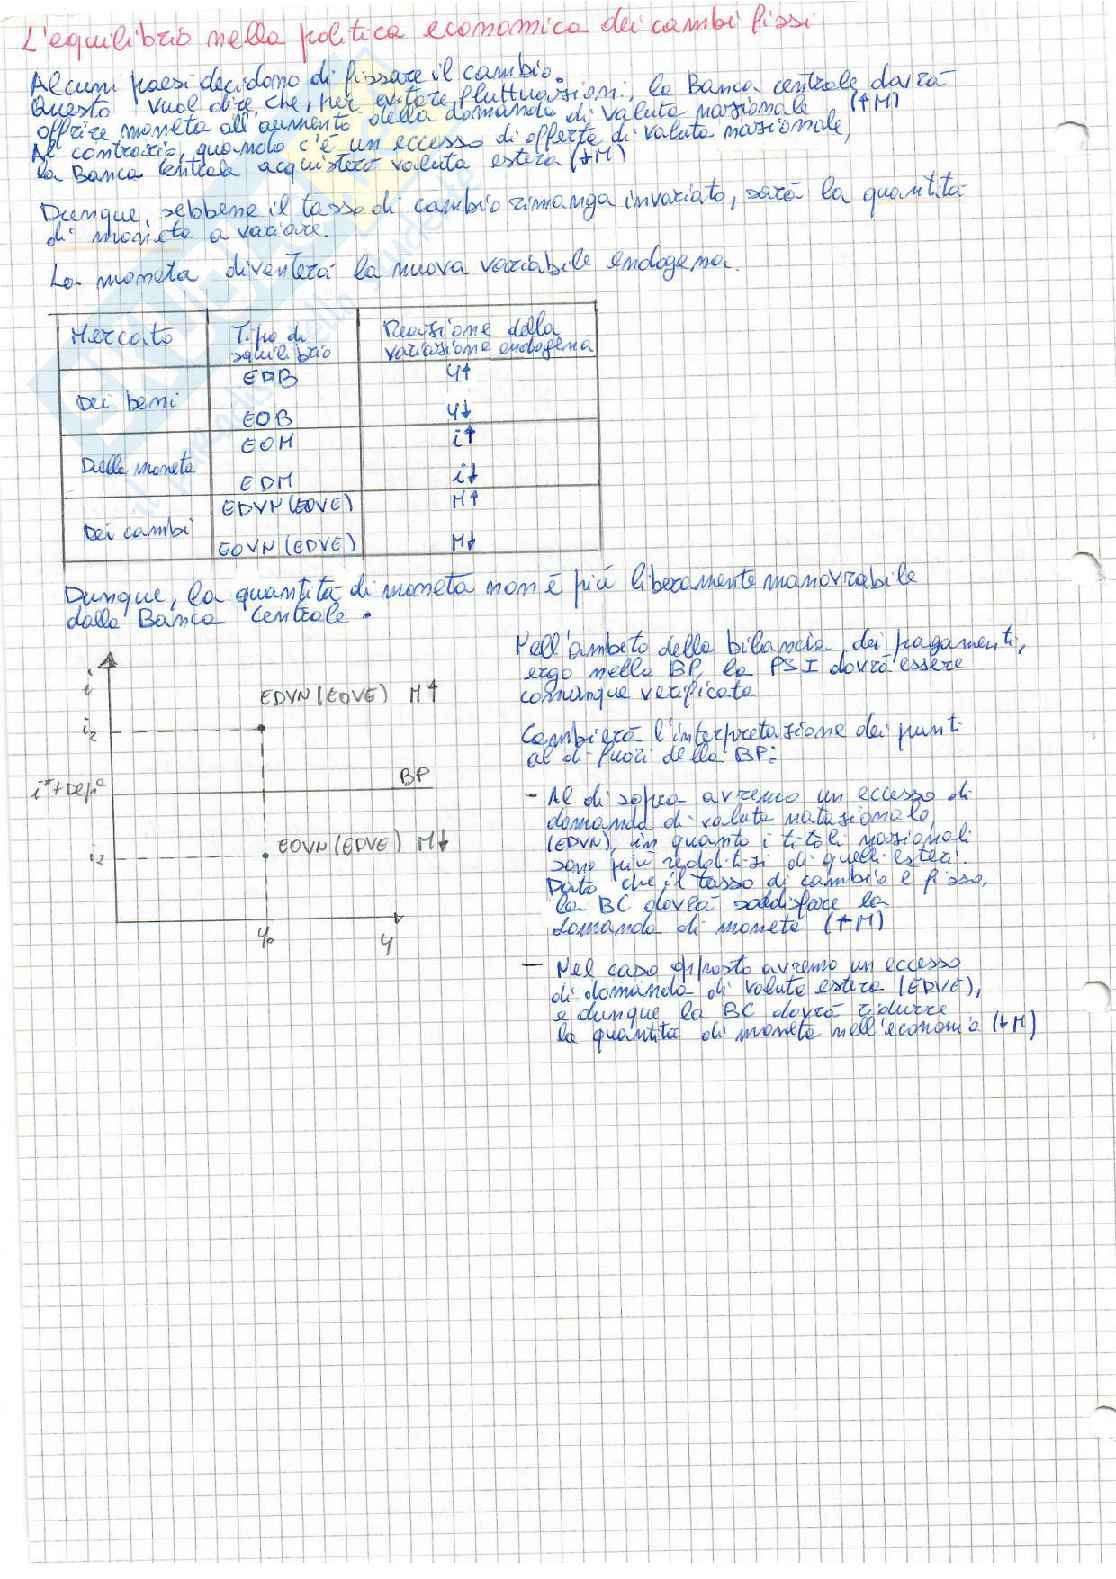 L'equilibrio nella politica economica dei cambi fissi
Alcuni paesi decidono di fissare il cambio.
Questo vuol dire che, per evitare fluttuazioni, la Banca centrale dovrà
offrire moneta all'aumento della domanda di valuta nazionale (↑M)
Al contrario, quando c'è un eccesso di offerta di valuta nazionale,
la Banca Centrale acquisterà valuta estera (↓M)
Dunque, sebbene il tasso di cambio rimanga invariato, sarà la quantità
di moneta a variare.
La moneta diventerà la nuova variabile endogena.
Mercato Tipo di equilibrio Reazione della variazione endogena
Dei beni EDB Y↑
EOB Y↓
Della moneta EOM i↑
EDM i↓
Dei cambi EDVN (EOVE) M↑
EOVN (EDVE) M↓
Dunque, la quantità di moneta non è più liberamente manovrabile
dalla Banca Centrale.
i
EDVN (EOVE) M↑
i2
BP
i*+Depc
EOVN (EDVE) M↓
i2
Y0
Y
Nell'ambito della bilancia dei pagamenti,
ergo nella BP, la PSI dovrà essere
comunque verificata
Cambierà l'interpretazione dei punti
al di fuori della BP:
- Al di sopra avremo un eccesso di
domanda di valuta
(EDVN), in quanto i titoli nazionali
sono più redditizi di quelli esteri.
Dato che il tasso di cambio è fisso,
la BC dovrà soddisfare la
domanda di moneta (↑M)
- Nel caso opposto avremo un eccesso
di domanda di valuta estera (EDVE),
e dunque la BC dovrà ridurre
la quantità di moneta nell'economia (↓M)